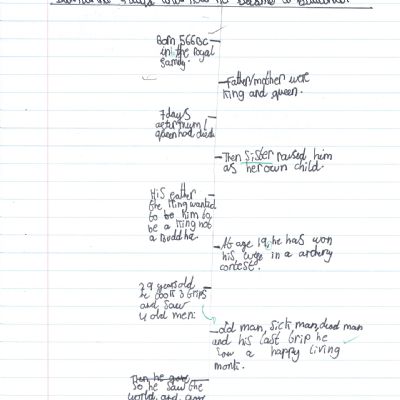 Born 566BC
in the Royal
family.
Father/mother were
King and queen.
7 days
after mum/
queen had died
Then sister raised him
as her own child.
His father
the King wanted
to be him to
be a King not
a Buddha.
At age 19, he has won
his wife in a archery
contest.
29 years old
he took 3 trips
and saw
4 old men:
old man, sick man, dead man
and his last trip he
saw a happy living
monk.
Then he gave
So he saw the
world and